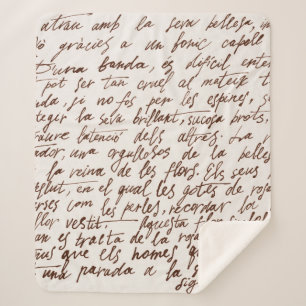 atrau amb la seva bellesa, in
gràcies a un fonic capell
D'una banda, és difícil enten
pot ser tan cruel al mateix t
da, si no fos per les espines, s
teger la seva brillant, sucosa brots,
aure l'atenció dels altres. La
ador, una orgullosos de la belles
la reina de les flors. Els seus
eslut, en el qual les gotes de rosa
erses com les perles, recordar la
llor vestit. Aquesta flor
an es tracta de la rosa
aus que els homes
una parada a la s
sig